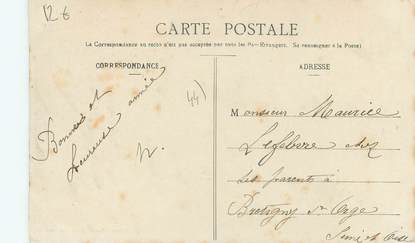 12.6
CARTE POSTALE
La Correspondance au recto n'est pas acceptée par tous les Pays Etrangers. Se renseigner à la Poste)
CORRESPONDANCE
ADRESSE
Bonne et
heureuse année
44)
Monsieur Maurice
Lefebvre chez
ses parents à
Bretigny s/ Orge
Seine et Oise